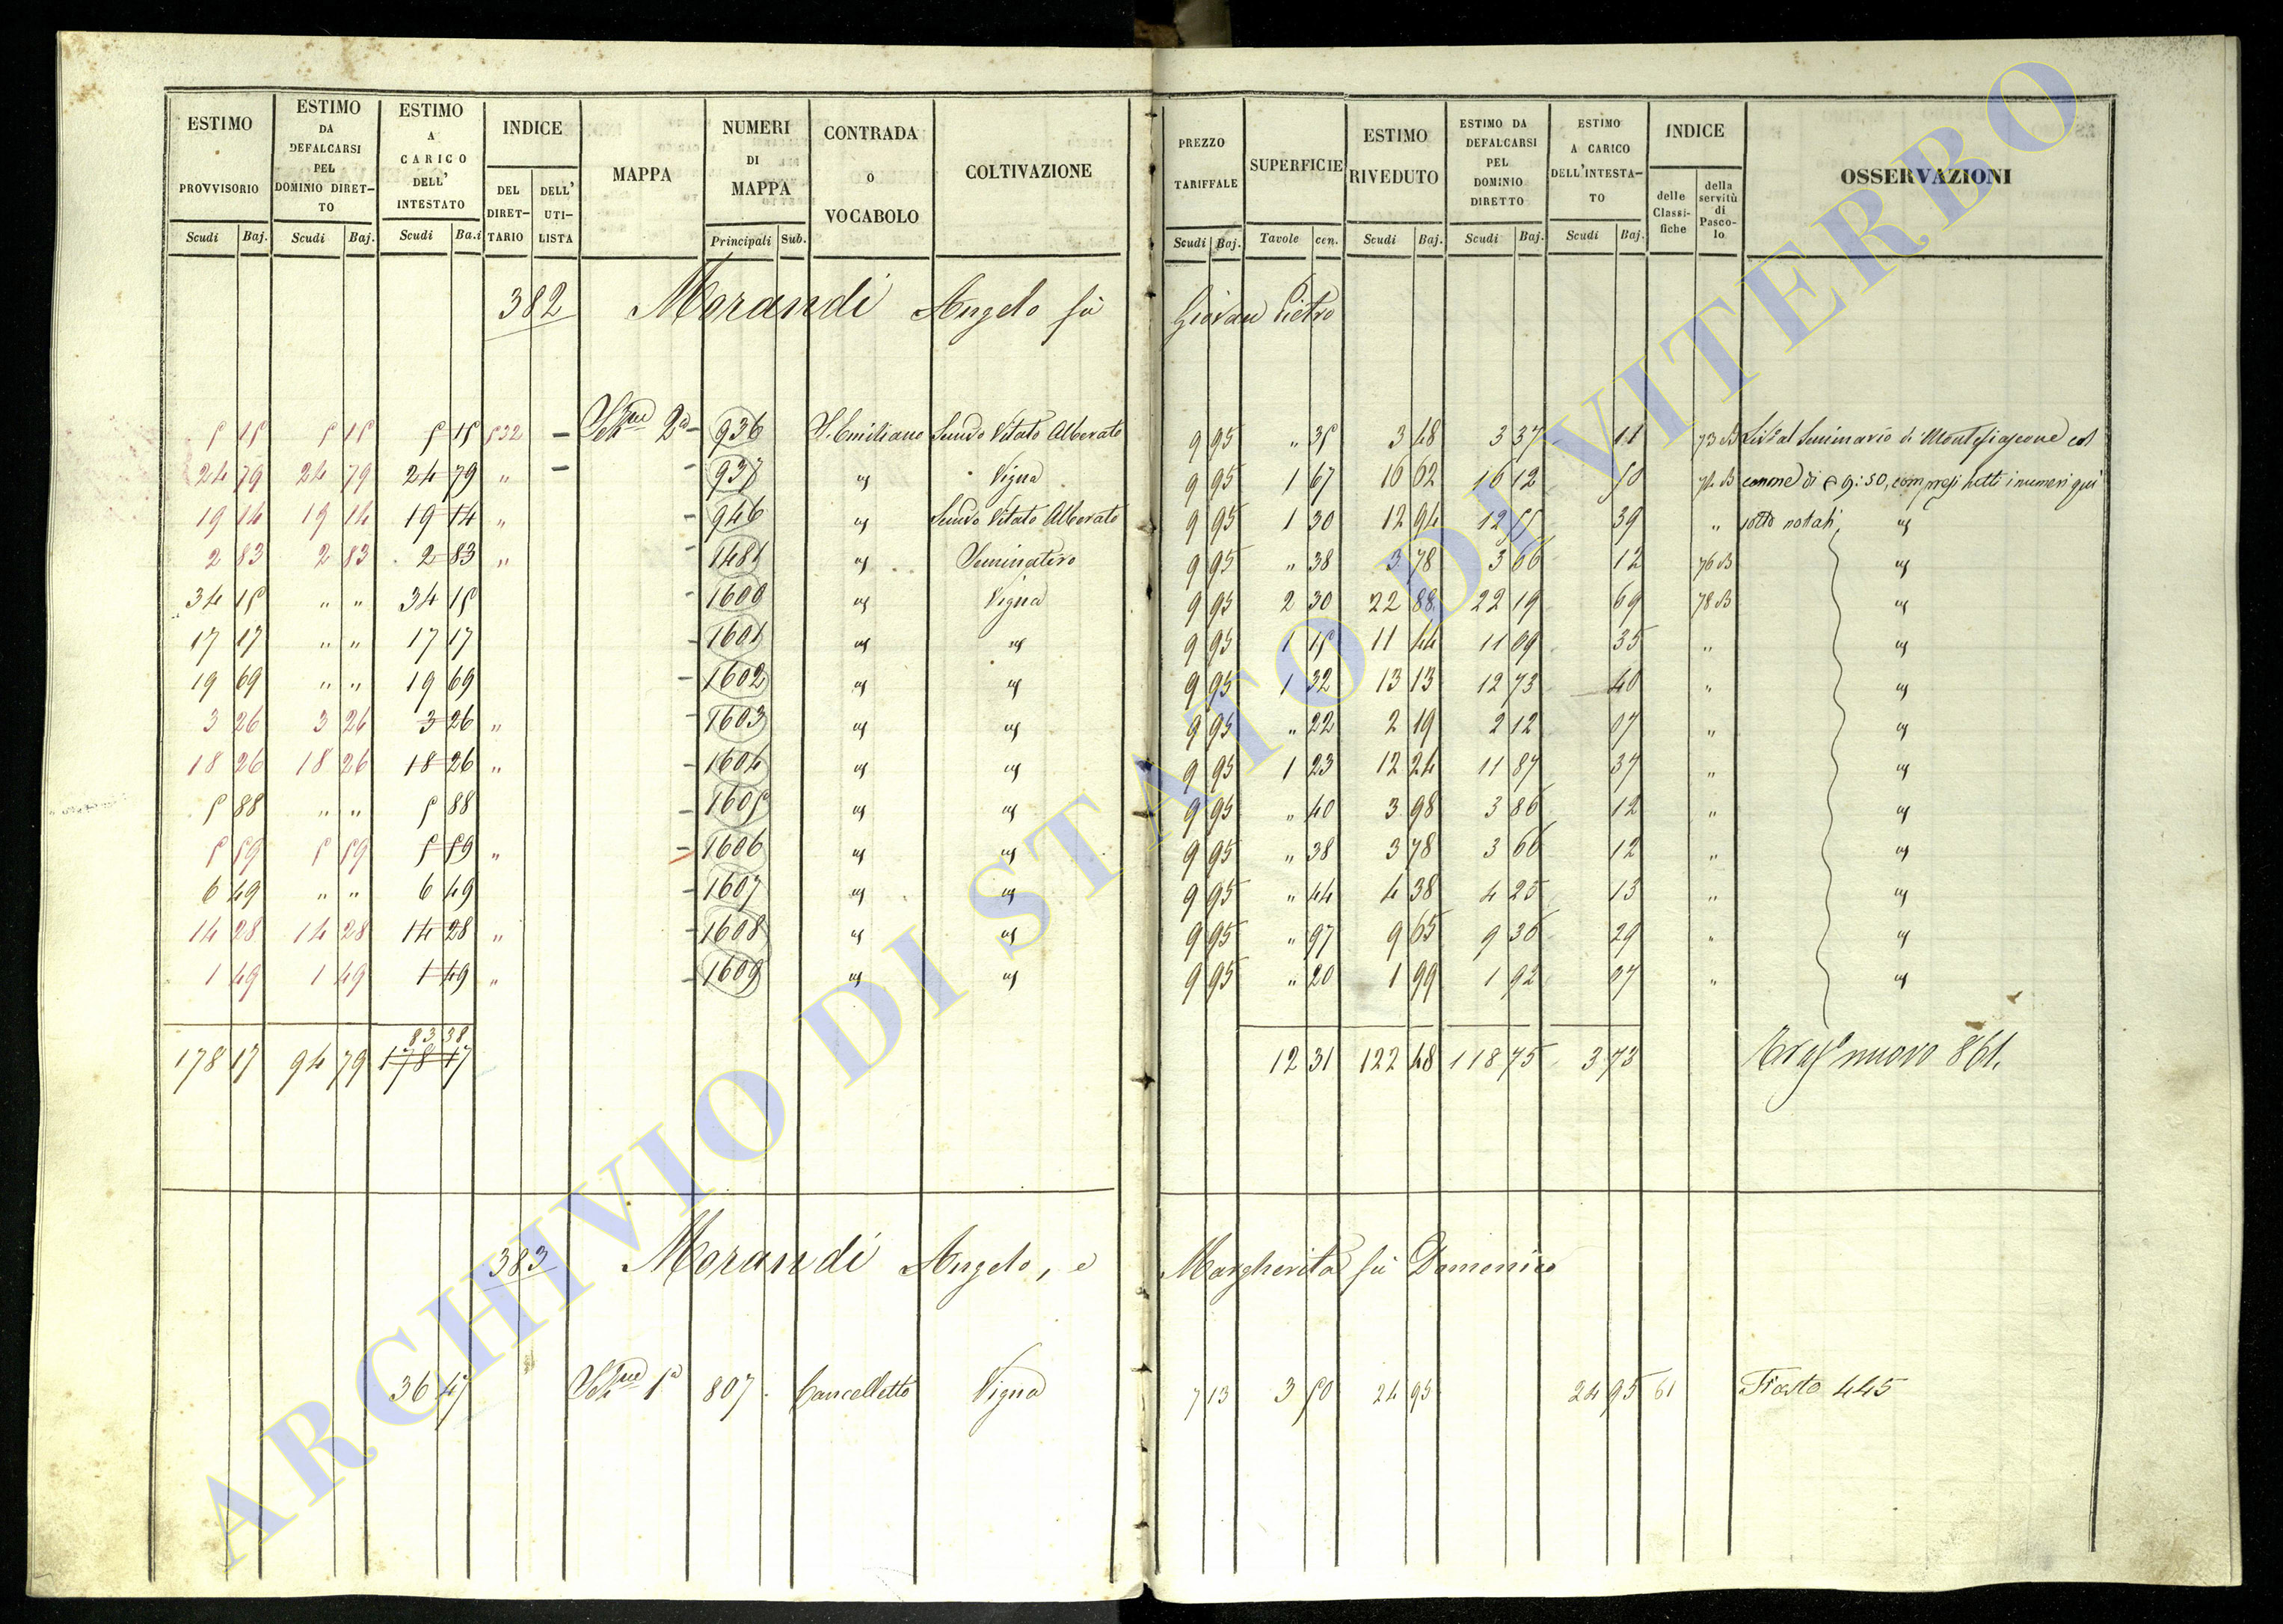 ESTIMO PROVVISORIO Scudi Baj.
ESTIMO DA DEFALCARSI PEL DOMINIO DIRET-TO Scudi Baj.
ESTIMO A CARICO DELL' INTESTATO Scudi Ba.i
INDICE DEL DIRET-TARIO DELL' UTI-LISTA
MAPPA
NUMERI DI MAPPA Principali Sub.
CONTRADA O VOCABOLO
COLTIVAZIONE
PREZZO TARIFFALE Scudi Baj.
SUPERFICIE Tavole cen.
ESTIMO RIVEDUTO Scudi Baj.
ESTIMO DA DEFALCARSI PEL DOMINIO DIRETTO Scudi Baj.
ESTIMO A CARICO DELL'INTESTA-TO Scudi Baj.
INDICE delle Classi-fiche della servitù di Pasco-lo
OSSERVAZIONI
382 Morandi Angelo fù Giovan Pietro
5 15 5 15 5 15 532 – 2a – 936 S. Emiliano Vitato Alberato 9 95 " 35 3 48 3 37 11 73 B al Seminario di Montefiascone col
24 79 24 79 24 79 " – – 937 " Vigna 9 95 1 67 16 62 16 12 50 74 B canone di 9:50, compresi tutti i numeri qui
19 14 19 14 19 14 " – 946 " Vitato Alberato 9 95 1 30 12 94 12 55 39 " sotto notati "
2 83 2 83 2 83 " – 1481 " Seminativo 9 95 " 38 3 78 3 66 12 76 B "
34 15 " " 34 15 – 1600 " Vigna 9 95 2 30 22 88 22 19 69 78 B "
17 17 " " 17 17 – 1601 " " 9 95 1 15 11 44 11 09 35 " "
19 69 " " 19 69 – 1602 " " 9 95 1 32 13 13 12 73 40 " "
3 26 3 26 3 26 " – 1603 " " 9 95 " 22 2 19 2 12 07 " "
18 26 18 26 18 26 " – 1604 " " 9 95 1 23 12 24 11 87 37 " "
5 88 " " 5 88 – 1605 " " 9 95 " 40 3 98 3 86 12 " "
5 59 5 59 5 59 " – 1606 " " 9 95 " 38 3 78 3 66 12 " "
6 49 " " 6 49 – 1607 " " 9 95 " 44 4 38 4 25 13 " "
14 28 14 28 14 28 " – 1608 " " 9 95 " 97 9 65 9 36 29 " "
1 49 1 49 1 49 " – 1609 " " 9 95 " 20 1 99 1 92 07 " "
83 38
178 17 94 79 178 17 12 31 122 48 118 75 3 73 nuovo 861.
383 Morandi Angelo, e Margherita fù Domenico
36 47 1a 807 Cancelletto Vigna 7 13 3 50 24 95 24 95 61 445
ARCHIVIO DI STATO DI VITERBO